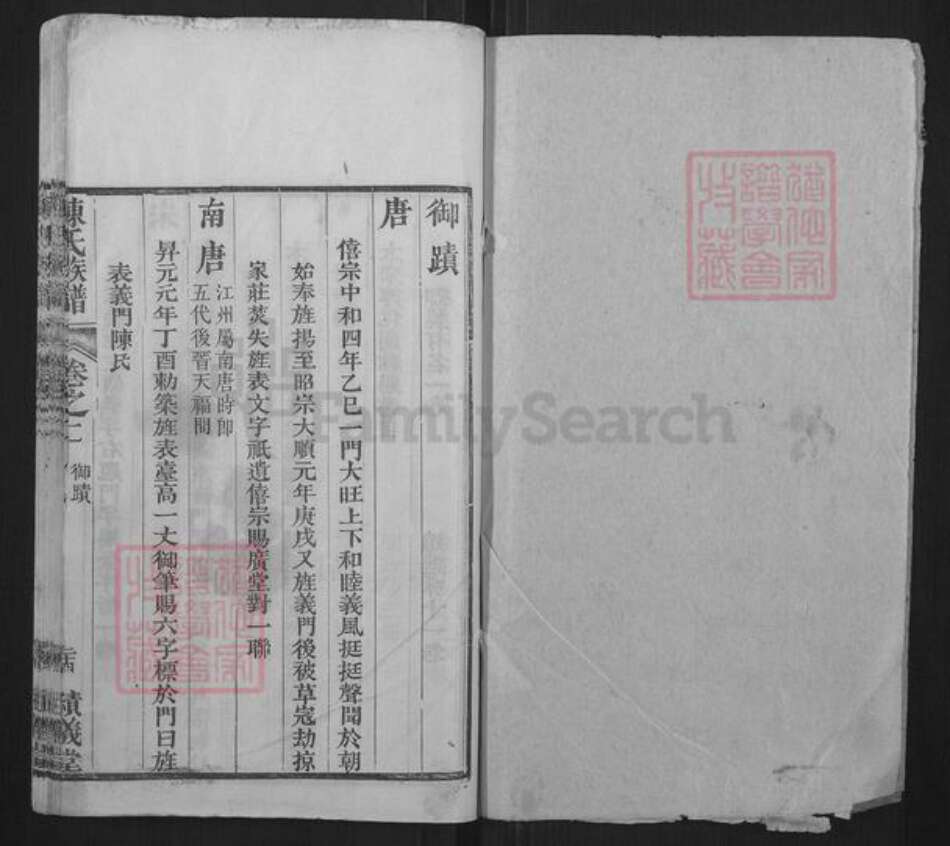 御蹟
唐
僖宗中和四年乙巳一門大旺上下和睦義風挺挺聲聞於朝
始奉旌揚至昭宗大順元年庚戌又旌義門後被草寇劫掠
家莊焚失旌表文字祇遺僖宗賜廣堂對一聯
南唐
江州屬南唐時即
五代後晉天福間
昇元元年丁酉勅築旌表臺高一丈御筆賜六字標於門曰旌
表義門陳氏
陳氏族譜
卷之二
御蹟
績義堂
FamilySearch